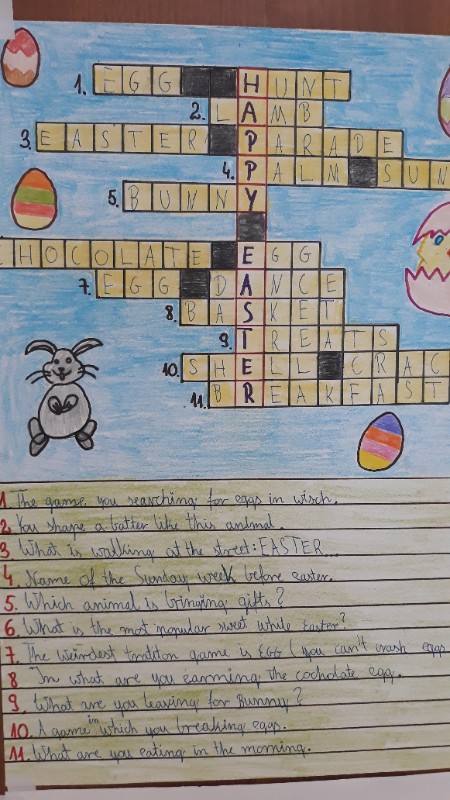 1. EGG HUNT
2. LAMB
3. EASTER PARADE
4. PALM SUN
5. BUNNY
CHOCOLATE EGG
7. EGG DANCE
8. BASKET
9. TREATS
10. SHELL CRAC
11. BREAKFAST
1. The game you searching for eggs in wisch.
2. You shape a batter like this animal.
3 What is walking at the street: EASTER...
4. Name of the Sunday week before easter.
5. Which animal is bringing gifts?
6. What is the most popular sweet while Easter?
7. The weirdest tradition game is EGG (you can't crash eggs
8 In what are you carrning the cocholate egg.
9. What are you leaving for Bunny?
10. A game in which you breaking eggs.
11. What are you eating in the morning.